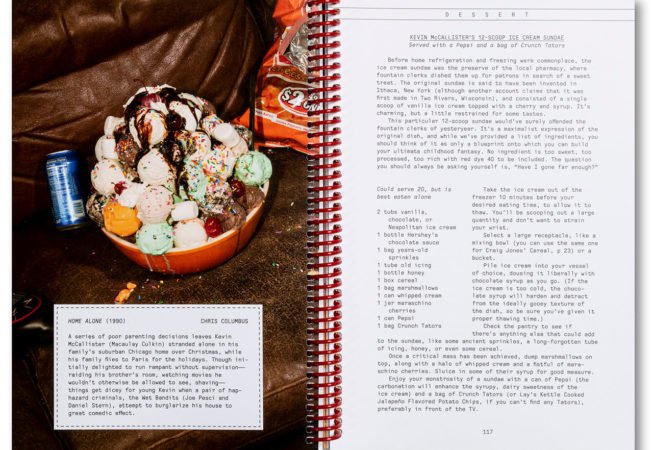 $2
HOME ALONE (1990) CHRIS COLUMBUS
A series of poor parenting decisions leaves Kevin
McCallister (Macaulay Culkin) stranded alone in his
family's suburban Chicago home over Christmas, while
his family flies to Paris for the holidays. Though ini-
tially delighted to run rampant without supervision—
raiding his brother's room, watching movies he
wouldn't otherwise be allowed to see, shaving—
things get dicey for young Kevin when a pair of hap-
hazard criminals, the Wet Bandits (Joe Pesci and
Daniel Stern), attempt to burglarize his house to
great comedic effect.
DESSERT
KEVIN McCALLISTER'S 12-SCOOP ICE CREAM SUNDAE
Served with a Pepsi and a bag of Crunch Tators
Before home refrigeration and freezing were commonplace, the
ice cream sundae was the preserve of the local pharmacy, where
fountain clerks dished them up for patrons in search of a sweet
treat. The original sundae is said to have been invented in
Ithaca, New York (although another account claims that it was
first made in Two Rivers, Wisconsin), and consisted of a single
scoop of vanilla ice cream topped with a cherry and syrup. It's
charming, but a little restrained for some tastes.
This particular 12-scoop sundae would've surely offended the
fountain clerks of yesteryear. It's a maximalist expression of the
original dish, and while we've provided a list of ingredients, you
should think of it as only a blueprint onto which you can build
your ultimate childhood fantasy. No ingredient is too sweet, too
processed, too rich with red dye 40 to be included. The question
you should always be asking yourself is, "Have I gone far enough?"
Could serve 20, but is
best eaten alone
2 tubs vanilla,
chocolate, or
Neapolitan ice cream
1 bottle Hershey's
chocolate sauce
1 bag years-old
sprinkles
1 tube old icing
1 bottle honey
1 box cereal
1 bag marshmallows
1 can whipped cream
1 jar maraschino
cherries
1 can Pepsi
1 bag Crunch Tators
Take the ice cream out of the
freezer 10 minutes before your
desired eating time, to allow it to
thaw. You'll be scooping out a large
quantity and don't want to strain
your wrist.
Select a large receptacle, like a
mixing bowl (you can use the same
one for Craig Jones' Cereal, p 23) or a
bucket.
Pile ice cream into your vessel
of choice, dousing it liberally with
chocolate syrup as you go. (If the
ice cream is too cold, the choco-
late syrup will harden and detract
from the ideally gooey texture of
the dish, so be sure you've given it
proper thawing time.)
Check the pantry to see if
there's anything else that could add
to the sundae, like some ancient sprinkles, a long-forgotten tube
of icing, honey, or even some cereal.
Once a critical mass has been achieved, dump marshmallows on
top, along with a halo of whipped cream and a fistful of mara-
schino cherries. Sluice in some of their syrup for good measure.
Enjoy your monstrosity of a sundae with a can of Pepsi (the
carbonation will enhance the syrupy, dairy sweetness of the
ice cream) and a bag of Crunch Tators (or Lay's Kettle Cooked
Jalapeño Flavored Potato Chips, if you can't find any Tators),
preferably in front of the TV.
117